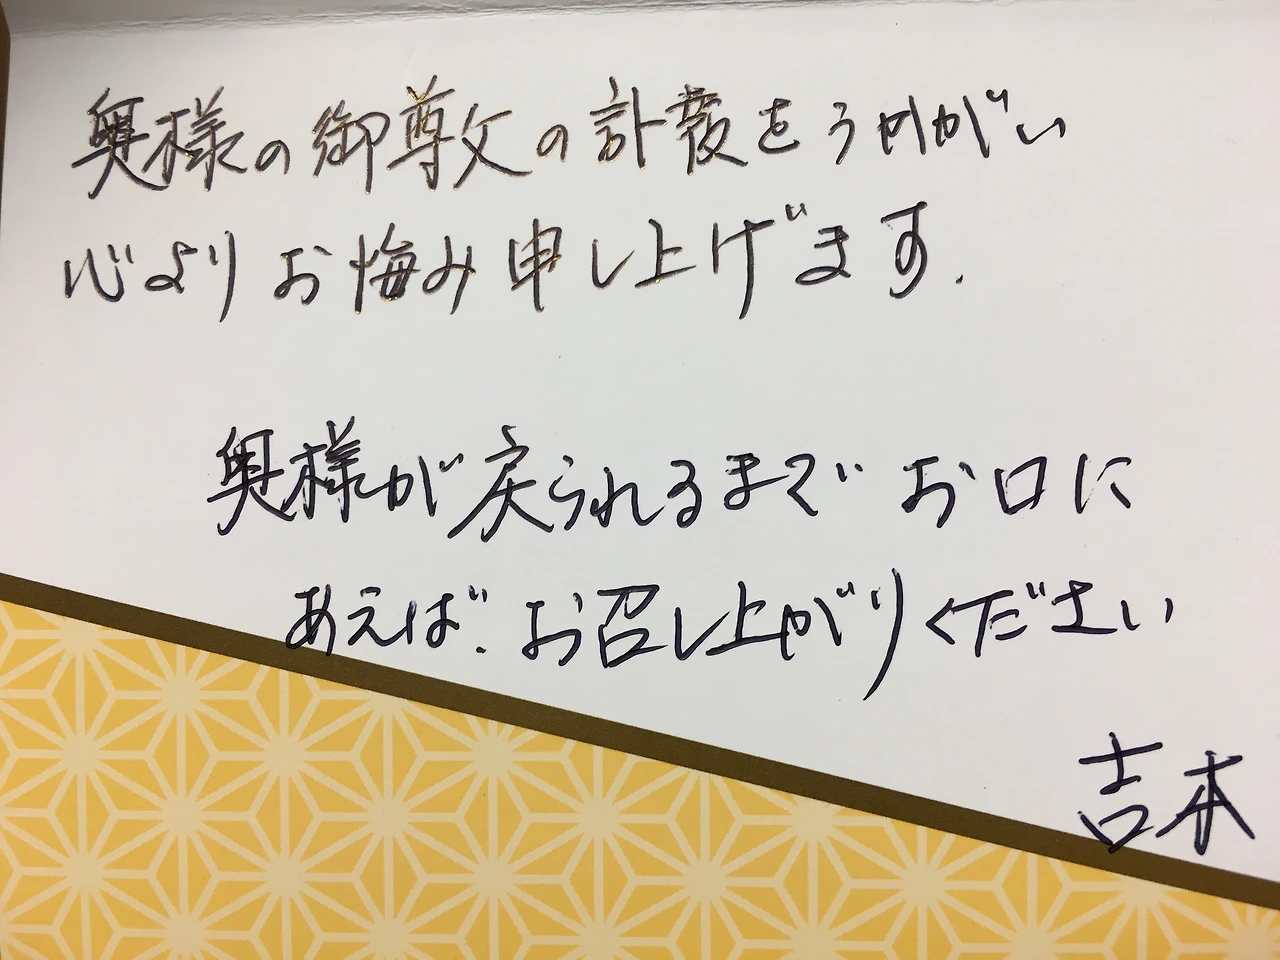 奥様の御尊父の訃報をうかがい
心よりお悔み申し上げます.
奥様が戻られるまでお口に
あえば、お召し上がりください
吉本